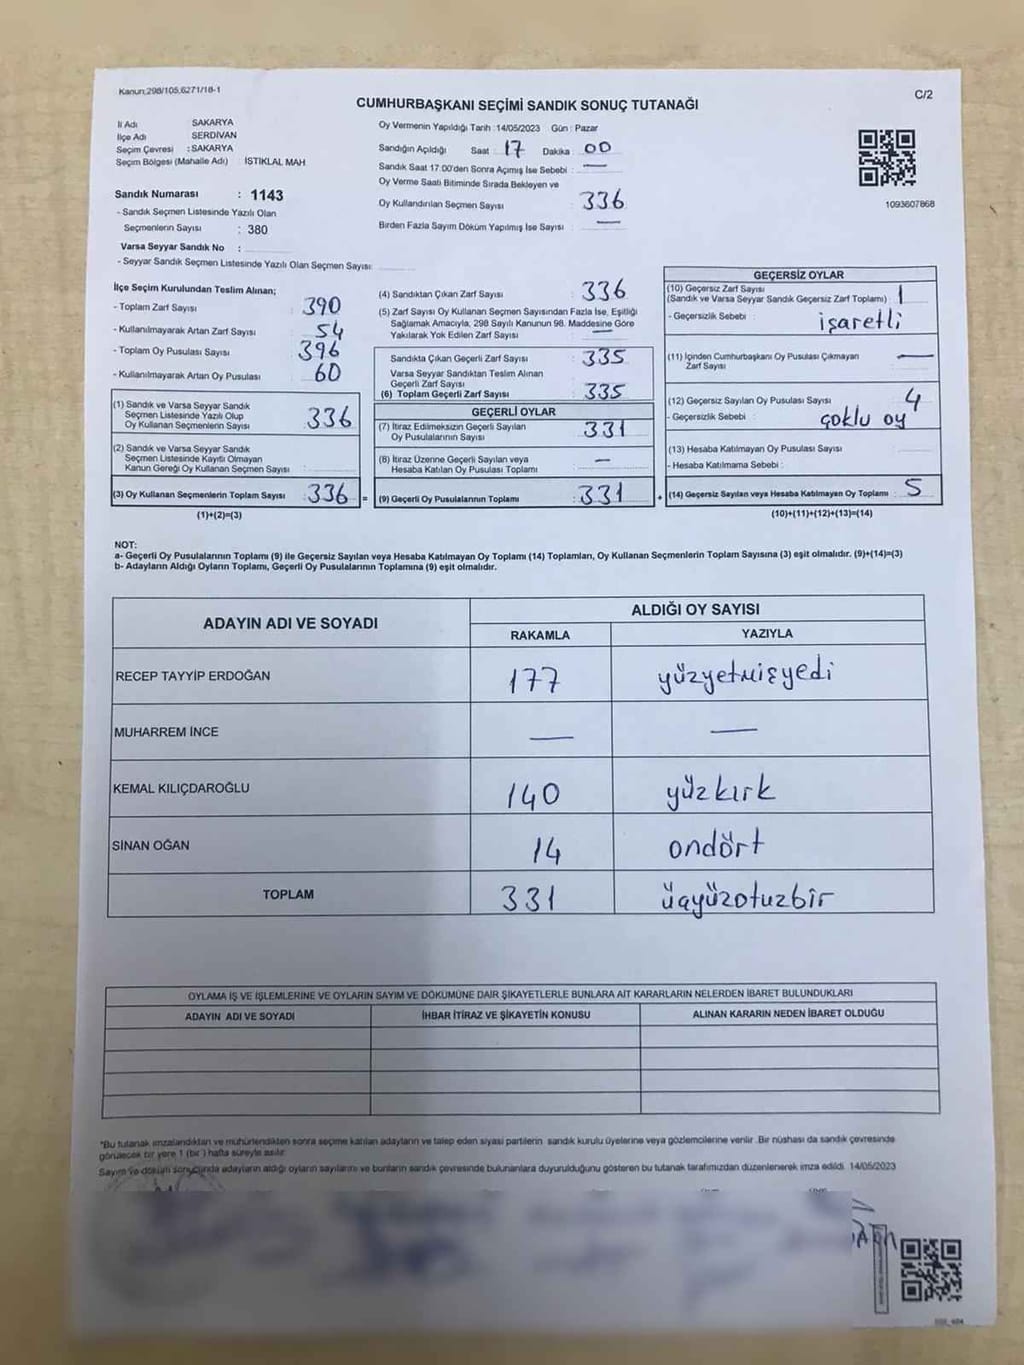 Kanun;298/105,6271/18-1
C/2
CUMHURBAŞKANI SEÇİMİ SANDIK SONUÇ TUTANAĞI
İl Adı SAKARYA
İlçe Adı SERDİVAN
Seçim Çevresi : SAKARYA
Seçim Bölgesi (Mahalle Adı) İSTİKLAL MAH
Sandık Numarası : 1143
- Sandık Seçmen Listesinde Yazılı Olan
Seçmenlerin Sayısı : 380
Varsa Seyyar Sandık No :
- Seyyar Sandık Seçmen Listesinde Yazılı Olan Seçmen Sayısı:
Oy Vermenin Yapıldığı Tarih :14/05/2023 Gün : Pazar
Sandığın Açıldığı Saat : 17 Dakika : 00
Sandık Saat 17.00'den Sonra Açımış İse Sebebi : —
Oy Verme Saati Bitiminde Sırada Bekleyen ve
Oy Kullandırılan Seçmen Sayısı : 336
Birden Fazla Sayım Döküm Yapılmış İse Sayısı : —
1093607868
İlçe Seçim Kurulundan Teslim Alınan;
- Toplam Zarf Sayısı : 390
- Kullanılmayarak Artan Zarf Sayısı : 54
- Toplam Oy Pusulası Sayısı : 396
- Kullanılmayarak Artan Oy Pusulası : 60
(1) Sandık ve Varsa Seyyar Sandık
Seçmen Listesinde Yazılı Olup
Oy Kullanan Seçmenlerin Sayısı : 336
(2) Sandık ve Varsa Seyyar Sandık
Seçmen Listesinde Kayıtlı Olmayan
Kanun Gereği Oy Kullanan Seçmen Sayısı :
(3) Oy Kullanan Seçmenlerin Toplam Sayısı : 336 =
(1)+(2)=(3)
(4) Sandıktan Çıkan Zarf Sayısı : 336
(5) Zarf Sayısı Oy Kullanan Seçmen Sayısından Fazla İse, Eşitliği
Sağlamak Amacıyla, 298 Sayılı Kanunun 98. Maddesine Göre
Yakılarak Yok Edilen Zarf Sayısı : —
Sandıkta Çıkan Geçerli Zarf Sayısı : 335
Varsa Seyyar Sandıktan Teslim Alınan
Geçerli Zarf Sayısı :
(6) Toplam Geçerli Zarf Sayısı : 335
GEÇERLİ OYLAR
(7) İtiraz Edilmeksizin Geçerli Sayılan
Oy Pusulalarının Sayısı : 331
(8) İtiraz Üzerine Geçerli Sayılan veya
Hesaba Katılan Oy Pusulası Toplamı : —
(9) Geçerli Oy Pusulalarının Toplamı : 331 +
GEÇERSİZ OYLAR
(10) Geçersiz Zarf Sayısı
(Sandık ve Varsa Seyyar Sandık Geçersiz Zarf Toplamı) : 1
- Geçersizlik Sebebi : işaretli
(11) İçinden Cumhurbaşkanı Oy Pusulası Çıkmayan
Zarf Sayısı : —
(12) Geçersiz Sayılan Oy Pusulası Sayısı : 4
- Geçersizlik Sebebi : çoklu oy
(13) Hesaba Katılmayan Oy Pusulası Sayısı :
- Hesaba Katılmama Sebebi :
(14) Geçersiz Sayılan veya Hesaba Katılmayan Oy Toplamı : 5
(10)+(11)+(12)+(13)=(14)
NOT:
a- Geçerli Oy Pusulalarının Toplamı (9) ile Geçersiz Sayılan veya Hesaba Katılmayan Oy Toplamı (14) Toplamları, Oy Kullanan Seçmenlerin Toplam Sayısına (3) eşit olmalıdır. (9)+(14)=(3)
b- Adayların Aldığı Oyların Toplamı, Geçerli Oy Pusulalarının Toplamına (9) eşit olmalıdır.
ADAYIN ADI VE SOYADI ALDIĞI OY SAYISI
RAKAMLA YAZIYLA
RECEP TAYYİP ERDOĞAN 177 yüzyetmişyedi
MUHARREM İNCE — —
KEMAL KILIÇDAROĞLU 140 yüzkırk
SİNAN OĞAN 14 ondört
TOPLAM 331 üçyüzotuzbir
OYLAMA İŞ VE İŞLEMLERİNE VE OYLARIN SAYIM VE DÖKÜMÜNE DAİR ŞİKAYETLERLE BUNLARA AİT KARARLARIN NELERDEN İBARET BULUNDUKLARI
ADAYIN ADI VE SOYADI İHBAR İTİRAZ VE ŞİKAYETİN KONUSU ALINAN KARARIN NEDEN İBARET OLDUĞU
*Bu tutanak imzalandıktan ve mühürlendikten sonra seçime katılan adayların ve talep eden siyasi partilerin sandık kurulu üyelerine veya gözlemcilerine verilir. Bir nüshası da sandık çevresinde
görülecek bir yere 1 (bir) hafta süreyle asılır.
Sayım ve döküm sonucunda adayların aldığı oyların sayılarını ve bunların sandık çevresinde bulunanlara duyurulduğunu gösteren bu tutanak tarafımızdan düzenlenerek imza edildi. 14/05/2023